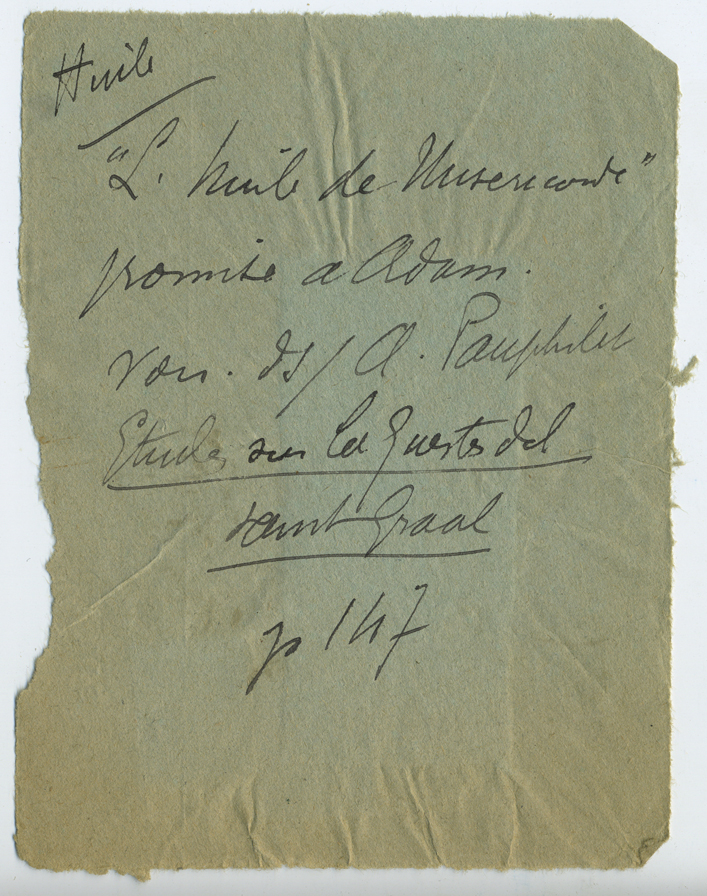 Huile
"L. huile de Misericorde"
promise a Adam.
voir. ds/ A. Pauphilet
Etudes sur la Queste del
saint Graal
p 147